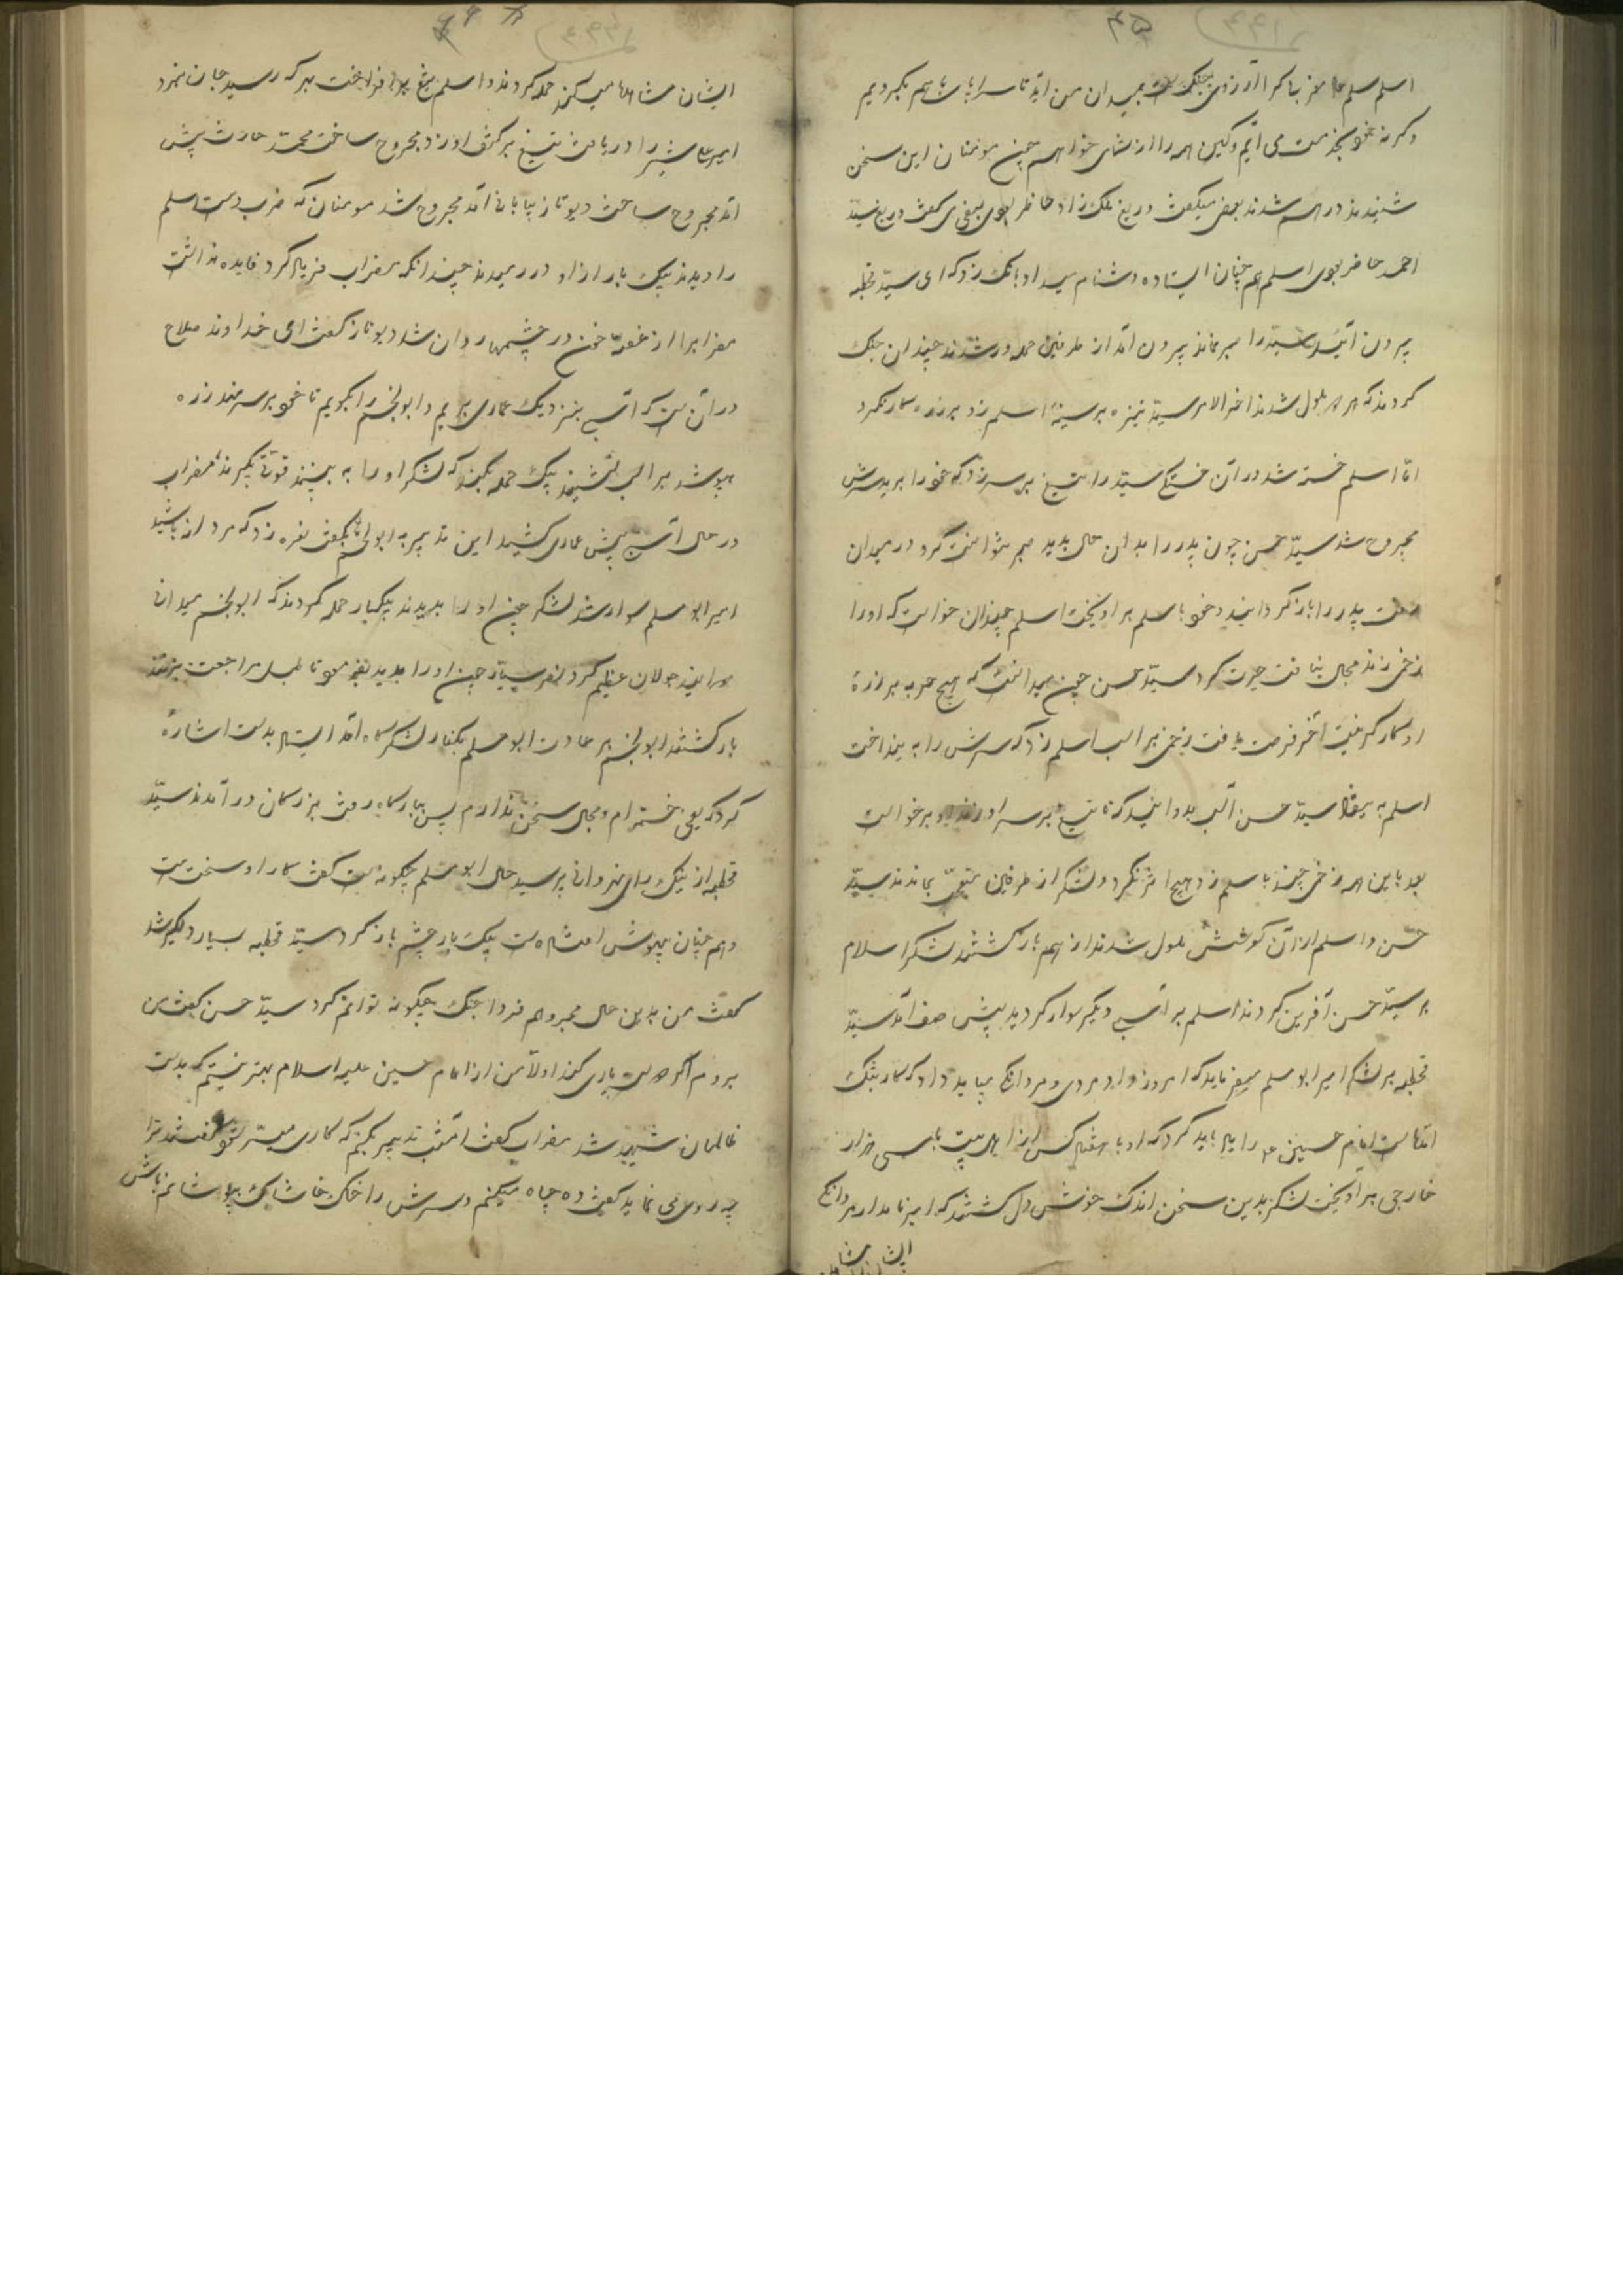 اسلم سلم مغربا کرا آرزوی جنگ است بمیدان من آید تا سراپا با هم بگردیم
وگرنه خود بخدمت می آیم وکین همه را از شما خواهم چون مومنان این سخن
شنیدند درهم شدند بعضی میگفت دریغ ملک زاد حاضر بودی بعضی می گفت دریغ سید
احمد حاضر بودی اسلم هم چنان ایستاده دشنام میداد بانک زد که ای سید قحطبه
بیرون آی سید را صبر نماند بیرون آمد از طرفین حمله ور شدند چندان جنگ
کردند که هر دو ملول شدند اخر الامر سید نیزه بر سینه اسلم زد بر زره کار نکرد
اما اسلم خسته شد در آن خستگی سید را تیغ بر سر زد که خود را برید سرش
مجروح شد سید حسن چون پدر را بدان حال بدید صبر نتوانست کرد در میدان
رفت پدر را باز گردانید و خود با اسلم بر اویخت اسلم چندان خواست که اورا
زخمی زند مجال نیافت حیرت کرد سید حسن چون میدانست که هیچ حربه بر زره
او کارگر نیست آخر فرصت یافت زخمی بر اسب اسلم زد که سرش را به ینداخت
اسلم به یفتاد سید حسن اسب بدوانید که تا تیغ بر سر او زند او برخواست
بعد باین همه زخمی چند با سلم زد هیچ اثر نکرد دو لشکر از طرفین متعجب بماندند سید
حسن واسلم از آن کوشش ملول شدند از هم باز گشتند لشکر اسلام
بر سید حسن آفرین کردند اسلم بر اسبی دیگر سوار گردید پیش صف آمد سید
قحطبه بر لشکر امیر ابو مسلم میفرماید که امروز داد مردی و مردانگی بباید داد که کار بتنگ
امام حسین را یاد باید کرد که او با هفتاد کس از اهل بیت با سی هزار
خارجی بر آویخت لشکر بدین سخن اندک خوش دل گشتند که امیر نامدار مردانگی
ایشان مشا
ایشان مشاهده میکند حمله کردند و اسلم تیغ برافراخت بهر که رسید جان نبرد
امیر علی شیر را دریافت تیغ بر کتف او زد مجروح ساخت محمد حارث پیش
آمد مجروح ساخت دیوتاز بیابانی آمد مجروح شد مومنان که ضرب دست اسلم
را دیدند بیک بار از او در رمیدند چندانکه مضراب فریاد کرد فایده نداشت
مضراب را از غصه خون در چشمها روان شد دیوتاز گفت ای خداوند صلاح
در آن است که اسبی بنزدیک عماری بریم و ابوالخیر را بگویم تا خود بر سر نهد زره
بپوشد بر اسب نشیند بیک حمله بکند که لشکر او را به بینند قوتی بگیرند مضراب
در حال اسب پیش عماری کشید این تدبیر به ابوالخیر بگفت نعره زد که مردانه باشید
امیر ابو مسلم سوار شد لشکر چون او را بدیدند بیکبار حمله کردند که ابوالخیر میدانی
جولان عظیم کرد نصر سیار چون اورا بدید بفرمود تا طبل مراجعت بزنند
باز گشتند ابوالخیر بر عادت ابو مسلم بکنار لشکرگاه آمد ایستاد بدست اشاره
کرد که یعنی خسته ام و مجال سخن ندارم پس ببارگاه رفت بزرگان در آمدند سید
قحطبه از نیک رای نهروانی پرسید حال ابو مسلم چگونه است گفت کار او سخت است
وهم چنان بیهوش افتاده است بیک بار چشم باز کرد سید قحطبه بسیار دلگیر شد
گفت من بدین حال مجروحم فردا جنگ چگونه توانم کرد سید حسن گفت من
بروم اگر خدا یاری کند اولا من از امام حسین علیه السلام بهتر نیستم که بدست
ظالمان شهید شد مضراب گفت امشب تدبیر بکنم که کاری میسر شود گفتند ترا
چه روی می نماید گفت ده چاه میکنم و سرش را خاک خاشاک بپوشانم باش